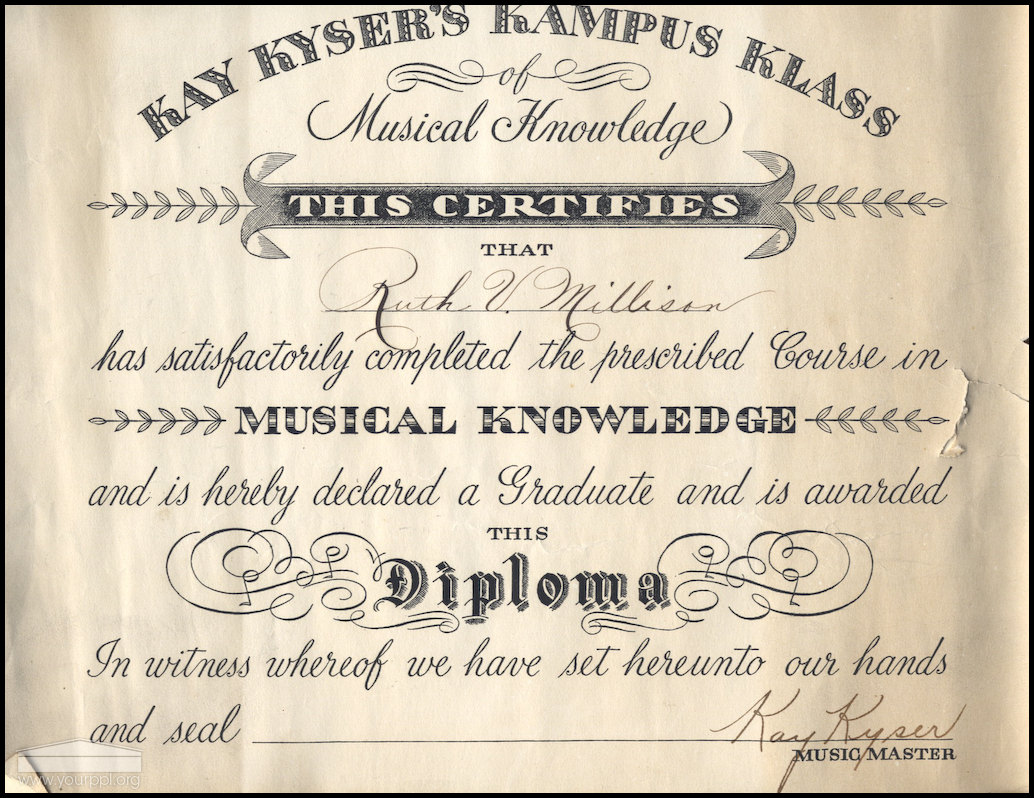 KAY KYSER'S KAMPUS KLASS
of
Musical Knowledge
THIS CERTIFIES
THAT
Ruth V. Millison
has satisfactorily completed the prescribed Course in
MUSICAL KNOWLEDGE
and is hereby declared a Graduate and is awarded
THIS
Diploma
In witness whereof we have set hereunto our hands
and seal Kay Kyser
MUSIC MASTER
www.yourppl.org